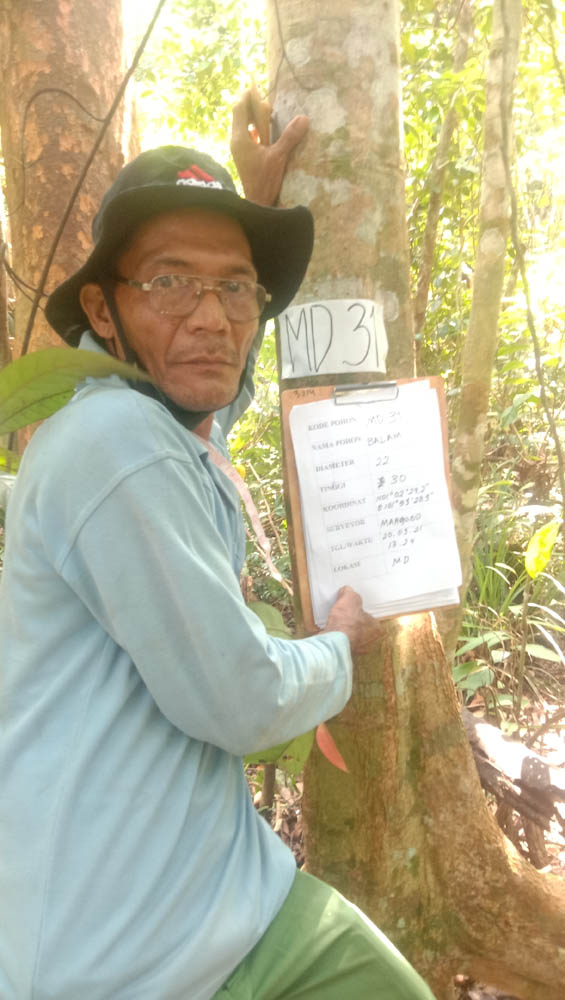 MD 31
KODE POHON MD 31
NAMA POHON BALAM
DIAMETER 22
TINGGI 30
KOORDINAT N01°02'29,2"
E101°
SURVEYOR
TGL/WAKTU 20.05.21
13.20
LOKASI MD